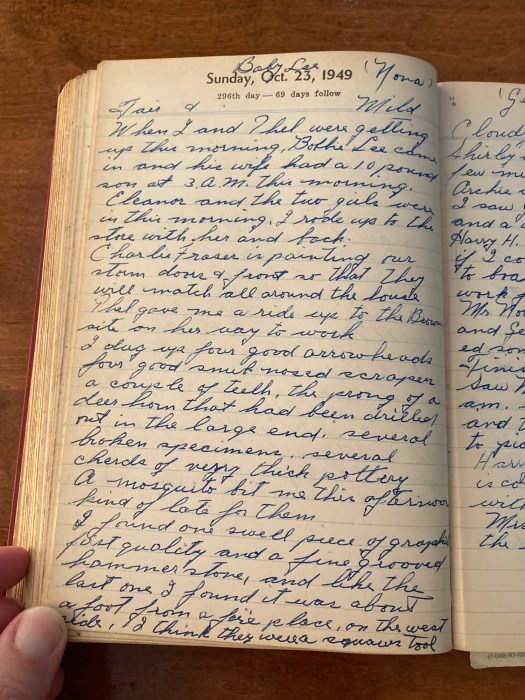 Baby Lee (Nona)
Sunday, Oct. 23, 1949
296th day — 69 days follow
Fair & Mild
When I and Thel were getting
up this morning, Bobbie Lee came
in and his wife had a 10 pound
son at 3 A.M. this morning.
Eleanor and the two girls were
in this morning. I rode up to the
store with her and back.
Charlie Fraser is painting our
storm doors & front so that they
will match all around the house
Thel gave me a ride up to the Brown
site on her way to work
I dug up four good arrowheads
four good snub nosed scrapers
a couple of teeth, the prong of a
deer horn that had been drilled
out in the large end, several
broken specimens, several
cherds of very thick pottery
A mosquito bit me this afternoon
kind of late for them
I found one swell piece of graphite
first quality and a fine grooved
hammerstone, and like the
last one I found it was about
a foot from a fire place, on the west
side, I think they were a squaws tool
Cloudy
Shirley
few mi
Archie
I saw
and a
Harry H.
if I co
to boa
work
Mr. No
and Ge
ed son
Finis
Saw
am.
and t
to pic
Harr
is co
will
Mrs
the